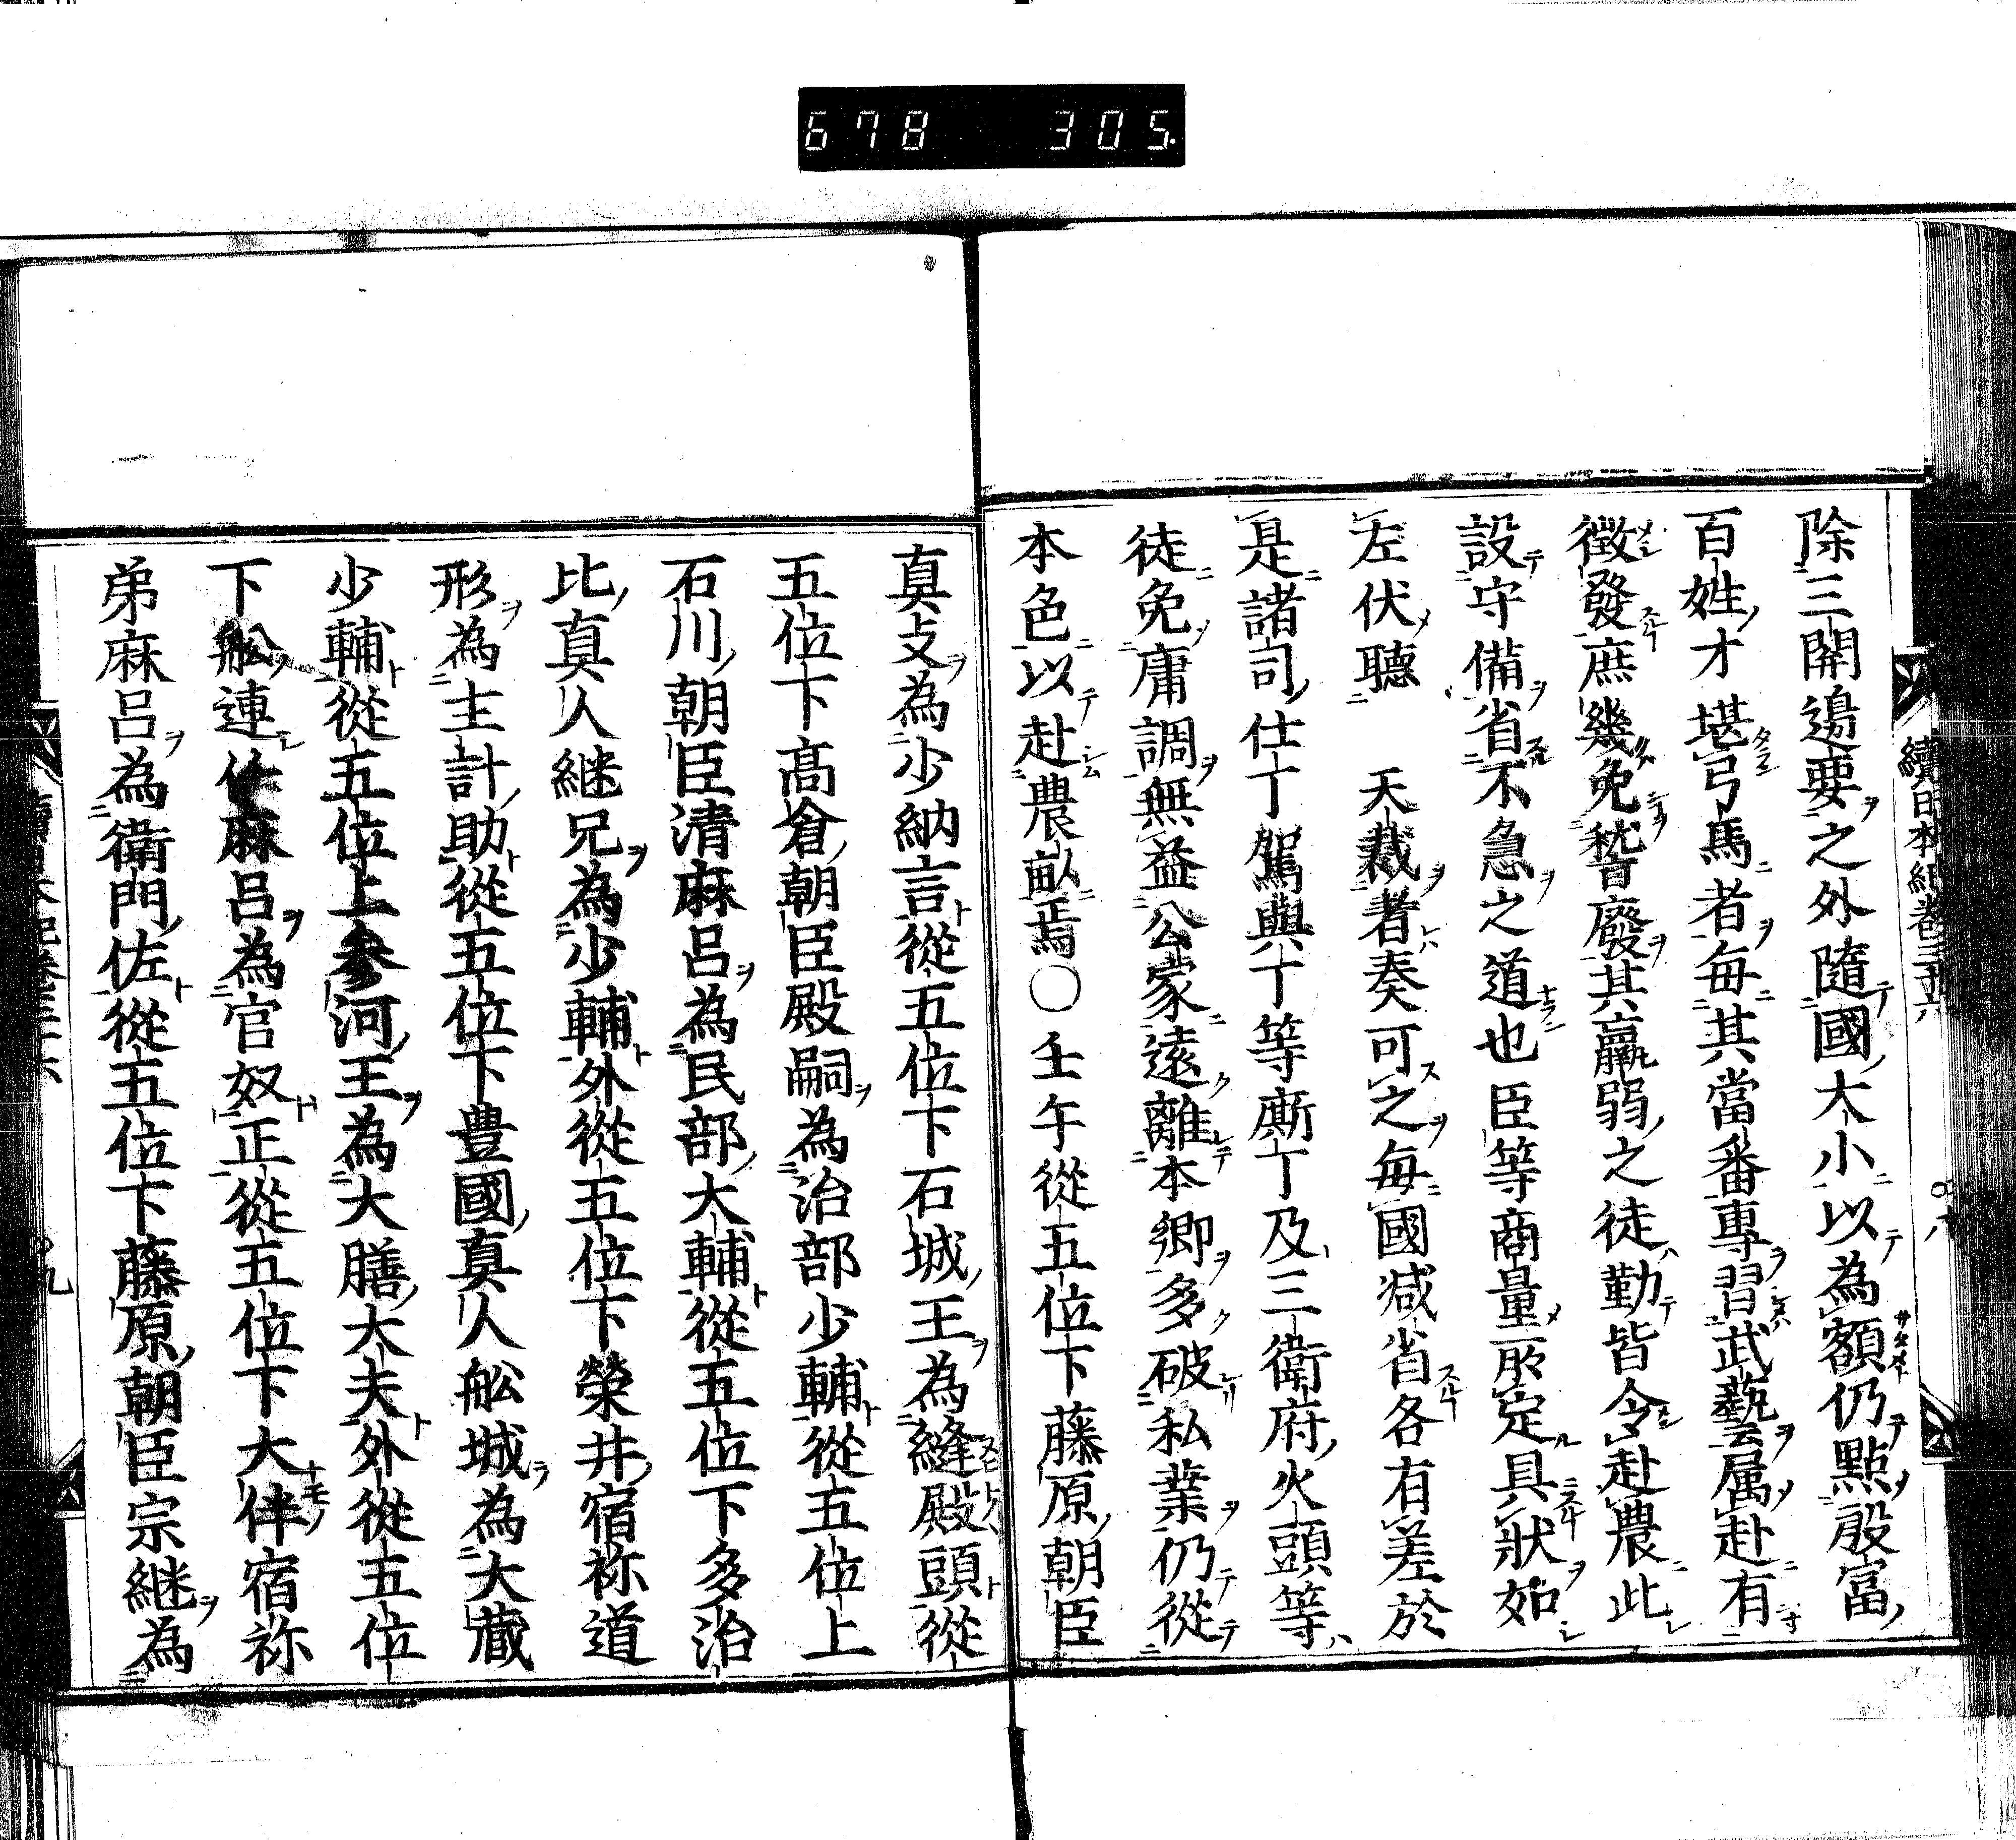 678 305
續日本紀卷三十六
除三關邊要之外隨國大小以為額仍點殷富
百姓才堪弓馬者每其當番專習武藝属赴有
徵發庶幾免稽廢其羸弱之徒勤皆令赴農此
設守備省不急之道也臣等商量所定具狀如
左伏聽　天裁者奏可之每國减省各有差於
是諸司仕丁駕輿丁等廝丁及三衛府火頭等
徒免庸調無益公蒙遠離本鄉多破私業仍從
本色以赴農畝焉○壬午從五位下藤原朝臣
真友為少納言從五位下石城王為縫殿頭從
五位下高倉朝臣殿嗣為治部少輔從五位上
石川朝臣清麻呂為民部大輔從五位下多治
比真人継兄為少輔外從五位下榮井宿祢道
形為主計助從五位下豊國真人船城為大藏
少輔從五位上参河王為大膳大夫外從五位
下船連住麻呂為官奴正從五位下大伴宿祢
弟麻呂為衛門佐從五位下藤原朝臣宗継為